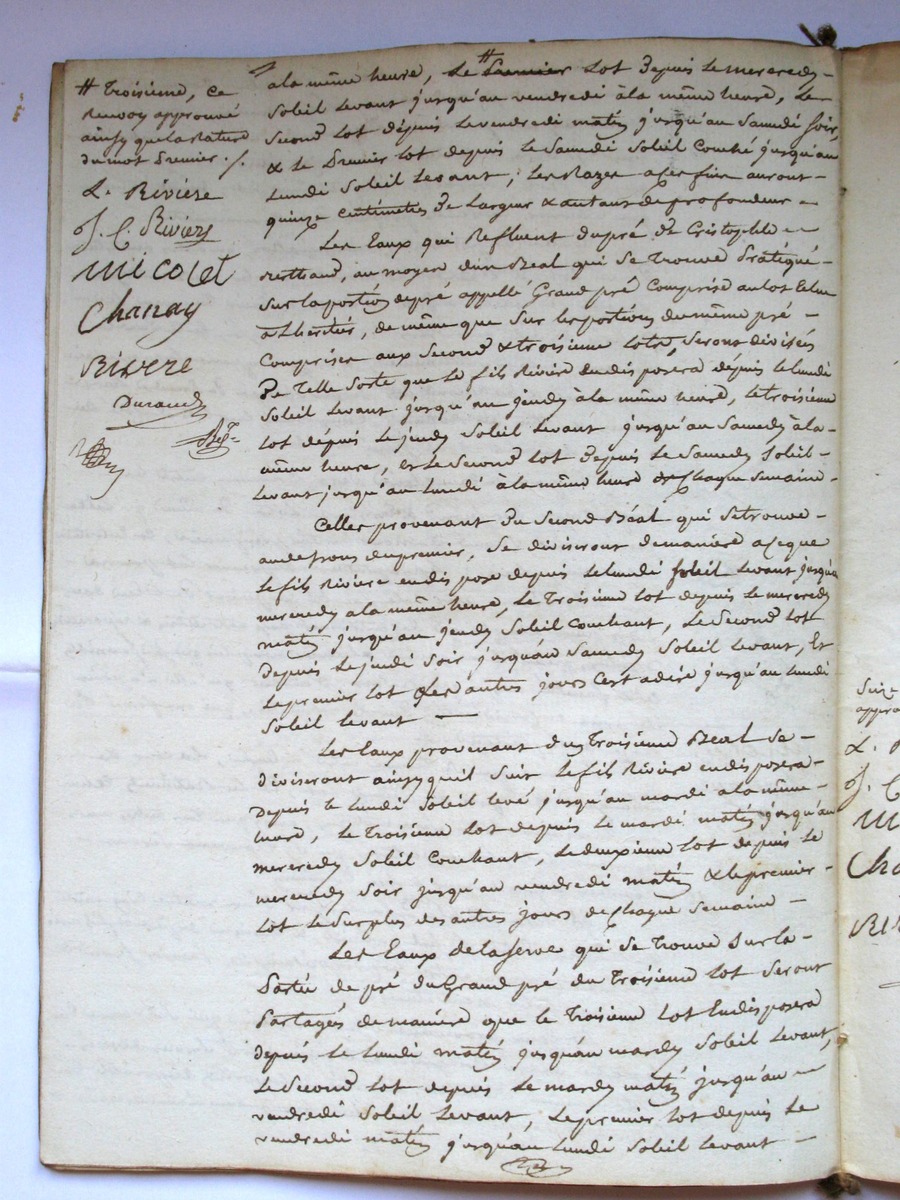 # Troisième, ce
renvoy approuvé
ainsy que la rature
du mot premier ./.
L. Rivière
J. C. Rivière
Nicolet
Chanay
Rivere
Durand
alà même heure, le # premier lot depuis le mercredy
Soleil levant jusqu'au vendredi àlà même heure, Le
Second lot dépuis le vendredi matin jusqu'au Samedi soir,
& le premier lot depuis le Samedi Soleil Couché jusqu'au
Lundi Soleil levant, Les Razes a ces fins auront
quinze centimètres de largeur & autant de profondeur
Les Eaux qui Refluent du pré de
au moyen d'un Béal qui Se Trouve pratiqué
Sur la portion de pré appellé Grand pré Comprise au lot Echu
, de même que Sur les portions du même pré
Comprises aux Second & troisième lots, Seront divisés
De Telle Sorte que Le fils Rivière en disposera dépuis le lundi
Soleil levant jusqu'au jeudy àlà même heure, le troisième
lot dépuis le jeudy Soleil Levant jusqu'au Samedy àlà
même heure, et le Second lot depuis le Samedy Soleil
Levant jusqu'au lundi àlà même heure de Chaque Semaine
Celles provenant du Second Béal qui Se trouve
audessous du premier, Se diviseront de manière a ce que
Le fils Rivière en dispose depuis le lundi Soleil Levant jusqu'au
mercredy a la même heure, Le Troisième lot depuis le mercredy
matin jusqu'au jeudy Soleil Couchant, Le Second lot
Depuis Le jeudi Soir jusquau Samedy Soleil Levant, Et
Le premier lot Les autres jours C'est adire jusqu'au lundi
Soleil levant
Les Eaux provenant du Troisième Béal Se
diviseront ainsy quil Suit Le fils Rivière en disposera
Depuis le lundi Soleil levé jusqu'au mardi a la même
heure, Le Troisième lot depuis le mardi matin jusqu'au
mercredy Soleil Couchant, Le deuxième lot depuis le
mercredy Soir jusqu'au vendredi matin & le premier
lot le Surplus des autres jours de Chaque Semaine
Les Eaux de la Serve qui Se Trouve Sur la
partie de pré du Grand pré du Troisième lot Seront
Partagés de manière que le Troisième lot En disposera
depuis Le lundi matin jusqu'au mardy Soleil Levant,
Le Second lot depuis le mardy matin jusqu'au
vendredi Soleil Levant, Le premier lot depuis Le
vendredi matin jusqu'au lundi Soleil Levant